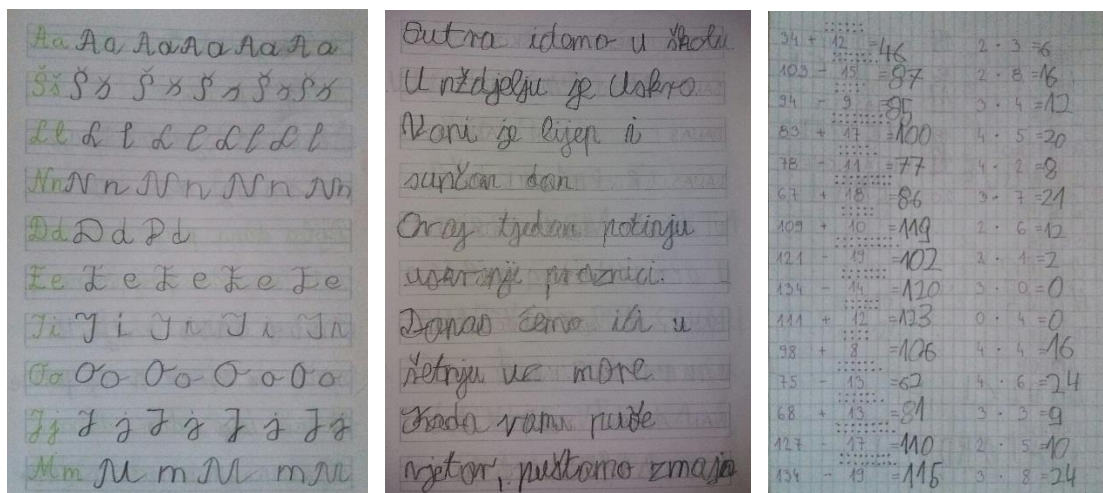 Aa Aa Aa Aa Aa Aa
Šš Šš Šš Šš Šš Šš
Ll L l L l L l L l
Nn N n N n N n Nn
Dd D d D d
Ee E e E e E e E e
Ii I i I i I i I i
Oo Oo Oo O o Oo
Jj J j J j J j J j
Mm M m M m M
Sutra idemo u školu
U nždjelju je Uskrs.
Vani je lijep i
sunčan dan
Ovaj tjedan počinju
uskrsnji praznici.
Danas ćemo ići u
šetnju uz more
Kada vani puše
vjetar, puštamo zmaja
34 + 12 =46
103 - 15 =87
94 - 9 =85
83 + 17 =100
78 - 11 =77
67 + 18 =86
109 + 10 =119
121 - 19 =102
134 - 14 =120
111 + 12 =123
98 + 8 =106
75 - 13 =62
68 + 13 =81
127 - 17 =110
134 - 19 =115
2 · 3 =6
2 · 8 =16
3 · 4 =12
4 · 5 =20
4 · 2 =8
3 · 7 =21
2 · 6 =12
2 · 1 =2
3 · 0 =0
0 · 4 =0
4 · 4 =16
4 · 6 =24
3 · 3 =9
2 · 5 =10
3 · 8 =24